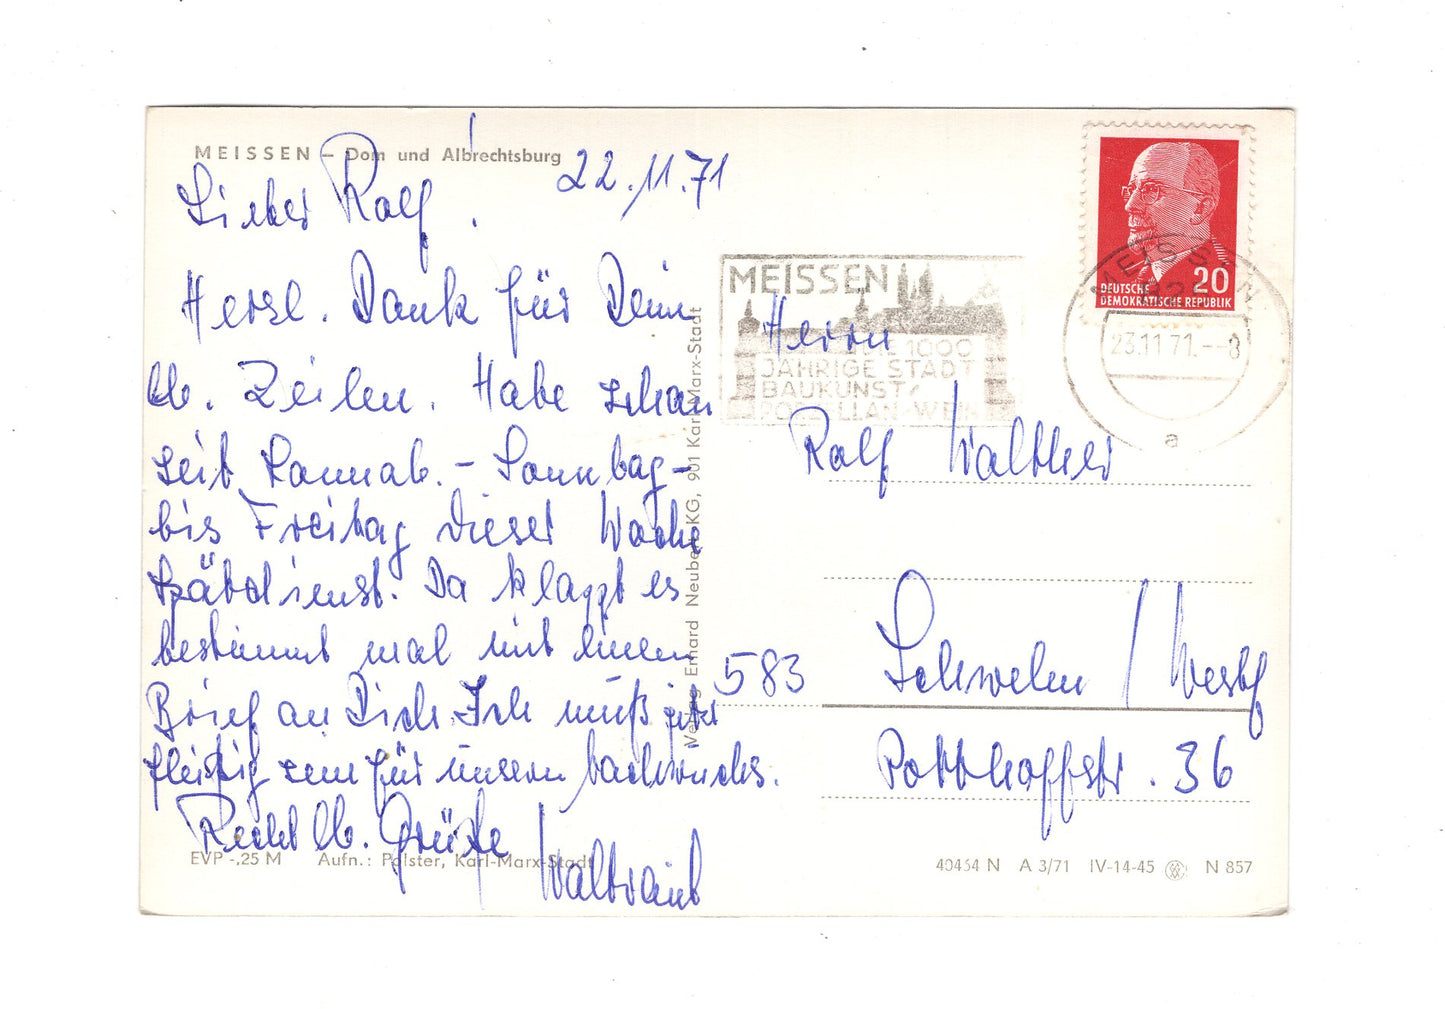 MEISSEN – Dom und Albrechtsburg
22.11.71
Lieber Ralf,
Herzl. Dank für Deine
lb. Zeilen. Habe schon
seit Sonnab. – Sonntag –
bis Freitag dieser Woche
Spätdienst. Da klappt es
bestimmt mal mit einem
Brief an Dich. Ich muß jetzt
fleißig sein für unseren
Recht lb. Grüße
Waltraud
EVP -,25 M Aufn.: Polster, Karl-Marx-Stadt
Verlag Erhard Neubert KG, 901 Karl-Marx-Stadt
MEISSEN
1000
JÄHRIGE STADT
BAUKUNST
PORZELLAN-WEIN
DEUTSCHE
DEMOKRATISCHE REPUBLIK
20
MEISSEN
23.11.71.--8
a
Herrn
Ralf Walther
583 Schwelm / Westf
Potthoffstr. 36
40464 N A 3/71 IV-14-45 N 857